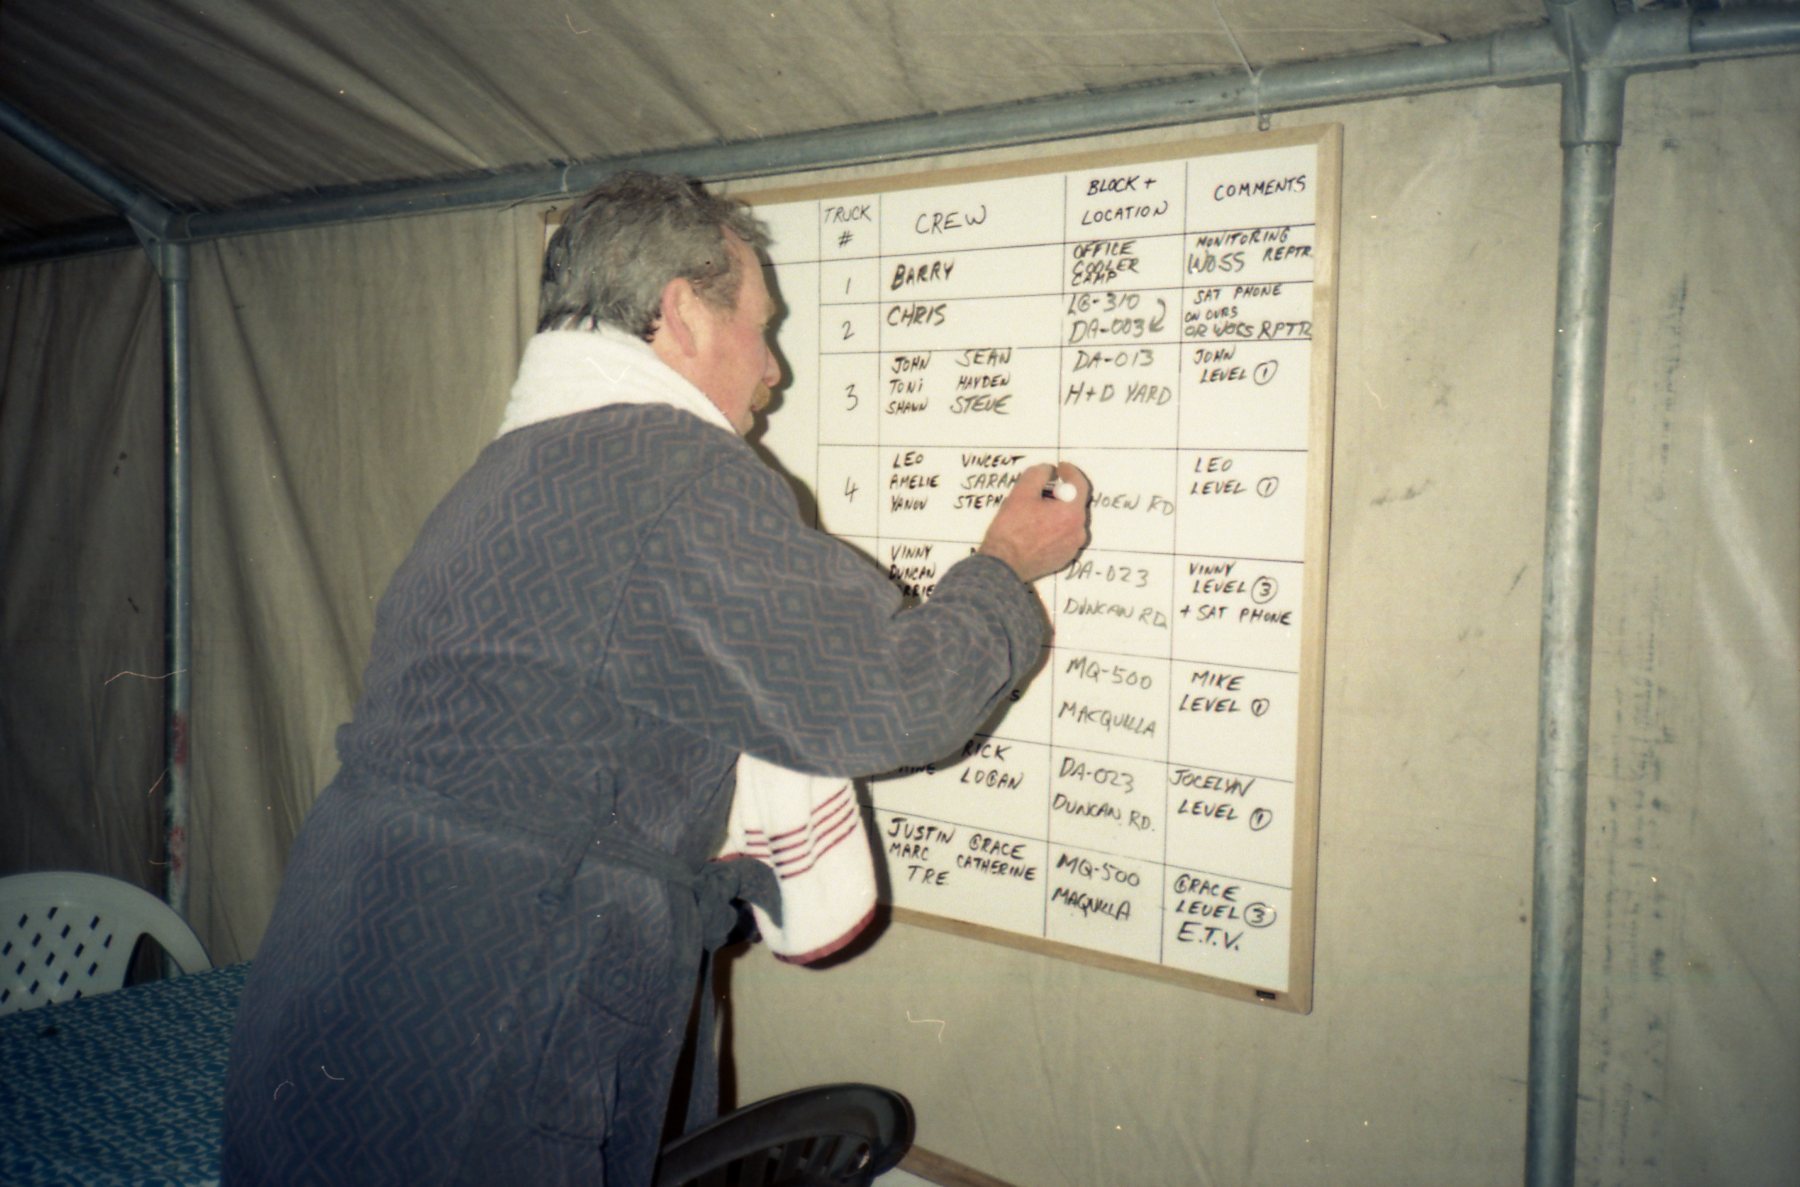 TRUCK #
CREW
BLOCK +
LOCATION
COMMENTS
1
BARRY
OFFICE
COOLER
CAMP
MONITORING
WOSS REPTR
2
CHRIS
LG-310
DA-003
SAT PHONE
ON OURS
OR WOSS RPTR
3
JOHN SEAN
TONI HAYDEN
SHAWN STEVE
DA-013
H+D YARD
JOHN
LEVEL 1
4
LEO VINCENT
AMELIE SARAH
YANOU
RD
LEO
LEVEL 1
VINNY
DUNCAN
DA-023
DUNCAN RD
VINNY
LEVEL 3
+ SAT PHONE
MQ-500
MACQUILLA
MIKE
LEVEL 1
RICK
LOGAN
DA-023
DUNCAN RD.
JOCELYN
LEVEL 1
JUSTIN GRACE
MARC CATHERINE
TRE
MQ-500
MAQUILLA
GRACE
LEVEL 3
E.T.V.